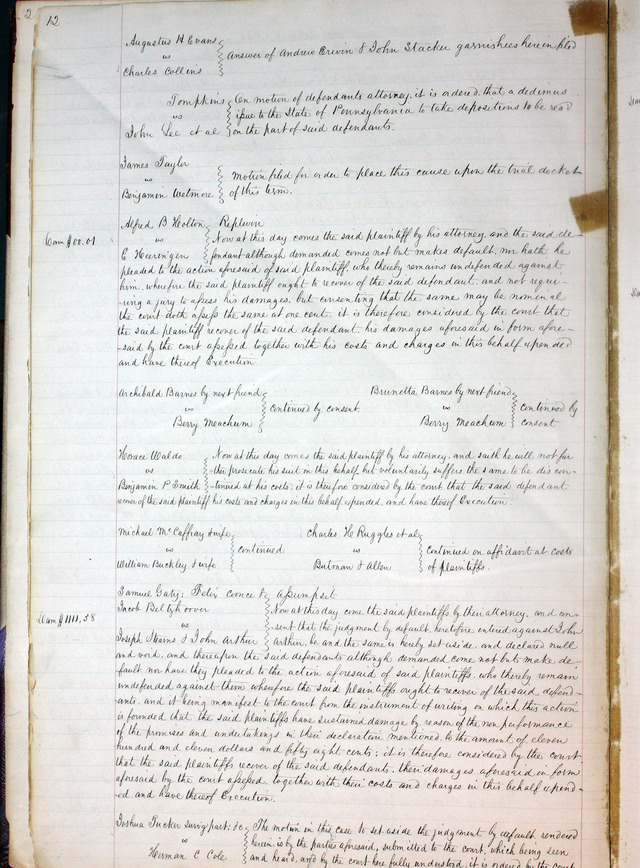 2
12
Augustus H Evans
vs
Charles Collins
Answer of Andrew Erwin & John Stacker garnishees herein filed
Tompkins
vs
John Lee et al
On motion of defendants attorney, it is ordered, that a dedimus
issue to the State of Pennsylvania to take depositions to be read
on the part of said defendants.
James Taylor
vs
Benjamin Wetmore
Motion filed for order to place this cause upon the trial docket
of this term.
Dam $00.01
Alfred B Holton
vs
E
Replevin
Now at this day comes the said plaintiff by his attorney, and the said de-
fendant although demanded comes not but makes default, nor hath he
pleaded to the action aforesaid of said plaintiff, who thereby remains undefended against
him, wherefore the said plaintiff ought to recover of the said defendant, and not requi-
ring a jury to assess his damages, but consenting that the same may be nominal
the court doth assess the same at one cent, it is therefore considered by the court that
the said plaintiff recover of the said defendant, his damages aforesaid in form afore-
-said by the court assessed together with his costs and charges in this behalf expended
and have thereof Execution.
Archibald Barnes by next friend
vs
Berry Meachum
continued by consent.
Brunetta Barnes by next friend
vs
Berry Meachum
continued by
consent
Horace Waldo
vs
Benjamin P Smith
Now at this day comes the said plaintiff by his attorney, and saith he will not fur
ther prosecute his suit in this behalf, but voluntarily suffers the same to be dis con-
-tinued at his costs, it is therefore considered by the court that the said defendant
recover of the said plaintiff his costs and charges in this behalf expended, and have thereof Execution.
Michael McCaffray & wife
vs
William Buckley & wife
continued
Charles H Ruggles et al
vs
Butman & Allen
continued on affidavit at costs
of plaintiffs.
Dam $1111.58
Samuel Gaty, Felix Conce &
Jacob Beltzhoover
vs
Joseph Stearns & John Arthur
assumpset
Now at this day come the said plaintiffs by their attorney, and con-
sent that the judgment by default, heretofore entered against John
Arthur, be and the same is hereby set aside, and declared null
and void, and thereupon the said defendants although demanded come not but make de-
fault nor have they pleaded to the action aforesaid of said plaintiffs, who thereby remain
undefended against them wherefore the said plaintiffs ought to recover of the said defend-
ants, and it being manifest to the court from the instrument of writing on which this action
is founded that the said plaintiffs have sustained damage by reason of the non performance
of the promises and undertakings in their declaration mentioned, to the amount of eleven
hundred and eleven dollars and fifty eight cents; it is therefore considered by the court
that the said plaintiffs recover of the said defendants, their damages aforesaid in form
aforesaid by the court assessed, together with their costs and charges in this behalf expend-
ed and have thereof Execution.
Joshua Tucker surviv'g part; &c
vs
Herman C Cole
The motion in this case to set aside the judgment by default, rendered
herein is by the parties aforesaid, submitted to the court, which being seen
and heard, and by the court here fully understood, it is ordered by the court